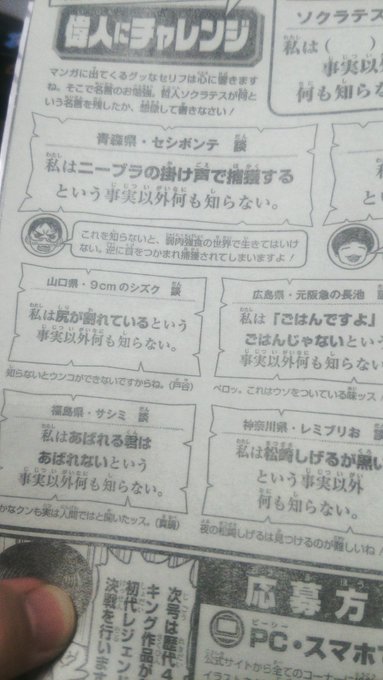 偉人にチャレンジ
マンガに出てくるグッなセリフは心に響きますね。
そこで名言のお勉強。偉人ソクラテスが何と
いう名言を残したか、想像して書きなさい!
ソクラテス
私は(
事実以
何も知らな
青森県・セシボンテ 談
私はニーブラの掛け声で捕獲する
という事実以外何も知らない。
これを知らないと、弱肉強食の世界で生きてはいけ
ない。逆に首をつかまれ捕獲されてしまいますよ!
山口県・9cmのシズク 談
私は尻が割れているという
事実以外何も知らない。
知らないとウンコができないですからね。(戸谷)
広島県・元阪急の長池
私は「ごはんですよ」
ごはんじゃないという
事実以外何も知らない。
ペロッ。これはウソをついている味ッス
福島県・サシミ 談
私はあばれる君は
あばれないという
事実以外何も知らない。
かなクンも実は人間ではと聞いたッス。
神奈川県・レミブリお 談
私は松崎しげるが黒い
という事実以外
何も知らない。
夜の松崎しげるは見つけるのが難しいね
次号は歴代4
キング作品が
初代レジェンド
決戦を行いま
応募方
PC・スマホ
公式サイトから全てのコーナーに
イラスト